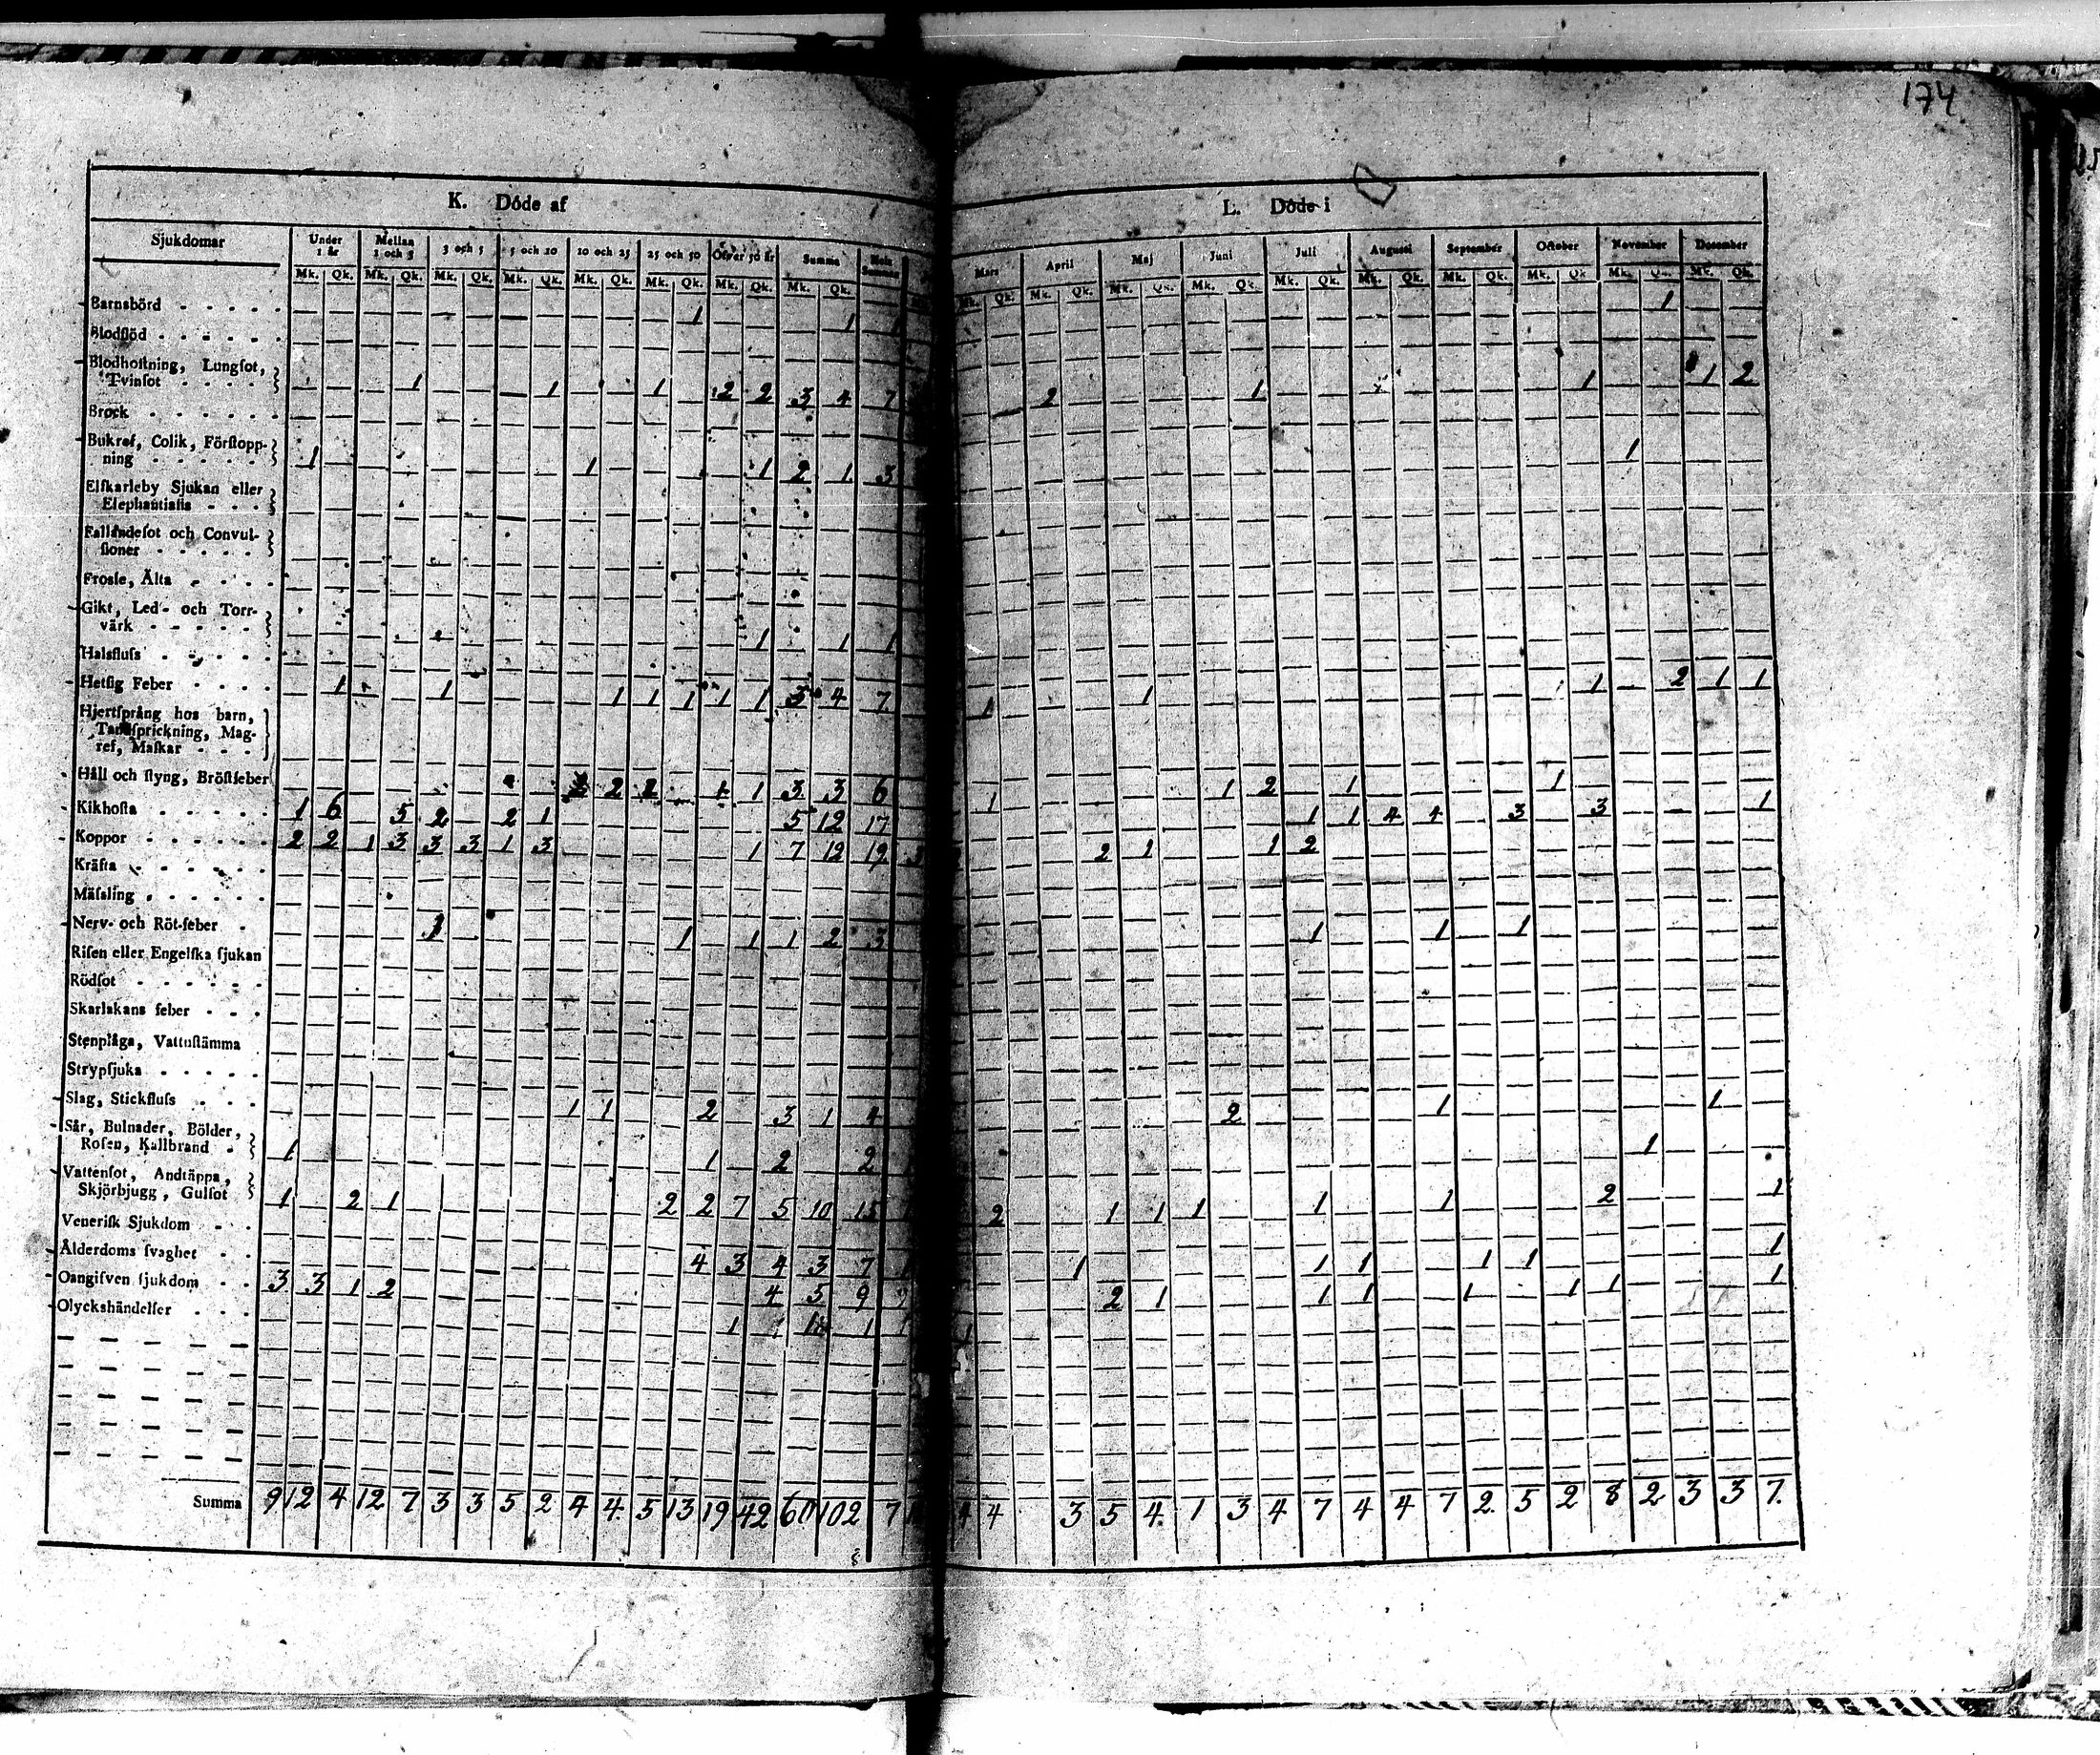 174
K. Döde af
L. Döde i
Sjukdomar Under 1 år Mellan 1 och 3 3 och 5 5 och 10 10 och 25 25 och 50 Öfver 50 år Summa Hela Summan
Mk. Qk. Mk. Qk. Mk. Qk. Mk. Qk. Mk. Qk. Mk. Qk. Mk. Qk. Mk. Qk.
Mars April Maj Juni Juli Augusti September October November December
Mk. Qk. Mk. Qk. Mk. Qk. Mk. Qk. Mk. Qk. Mk. Qk. Mk. Qk. Mk. Qk. Mk. Qk. Mk. Qk.
Barnsbörd 1 1 1 1
Blodflöd
Blodhoſtning, Lungſot,
Tvinſot 1 1 1 2 2 3 4 7 2 1 1 1 2
Brock
Bukref, Colik, Förſtopp-
ning 1 1 1 2 1 3 1
Elſkarleby Sjukan eller
Elephantiaſis
Fallandeſot och Convul-
ſioner
Froſſe, Älta
Gikt, Led- och Torr-
värk 1 1 1
Halsfluſs
Hetſig Feber 1 1 1 1 1 1 1 3 4 7 1 1 1 2 1 1
Hjertſprång hos barn,
Tandſprickning, Mag-
ref, Maſkar
Håll och ſtyng, Bröſtfeber 2 2 1 1 3 3 6 1 1 2 1 1
Kikhoſta 1 6 5 2 2 1 5 12 17 1 1 4 4 3 3 1
Koppor 2 2 1 3 3 3 1 3 1 7 12 19 2 1 1 2
Kräfta
Mäſsling
Nerv- och Röt-feber 1 1 1 1 2 3 1 1 1
Riſen eller Engelſka ſjukan
Rödſot
Skarlakans feber
Stenplåga, Vattuſtämma
Strypſjuka
Slag, Stickfluſs 1 1 2 3 1 4 2 1 1
Sår, Bulnader, Bölder,
Roſen, Kallbrand 1 1 2 2 1
Vattenſot, Andtäppa,
Skjörbjugg, Gulſot 1 2 1 2 2 7 5 10 15 2 1 1 1 1 1 2 1
Veneriſk Sjukdom
Ålderdoms ſvaghet 4 3 4 3 7 1 1 1 1 1 1 1
Oangifven ſjukdom 3 3 1 2 4 5 9 2 1 1 1 1 1 1 1
Olyckshändelſer 1 1 1 1
Summa 9 12 4 12 7 3 3 5 2 4 4 5 13 19 42 60 102 7 4 4 3 5 4 1 3 4 7 4 4 7 2 5 2 8 2 3 3 7